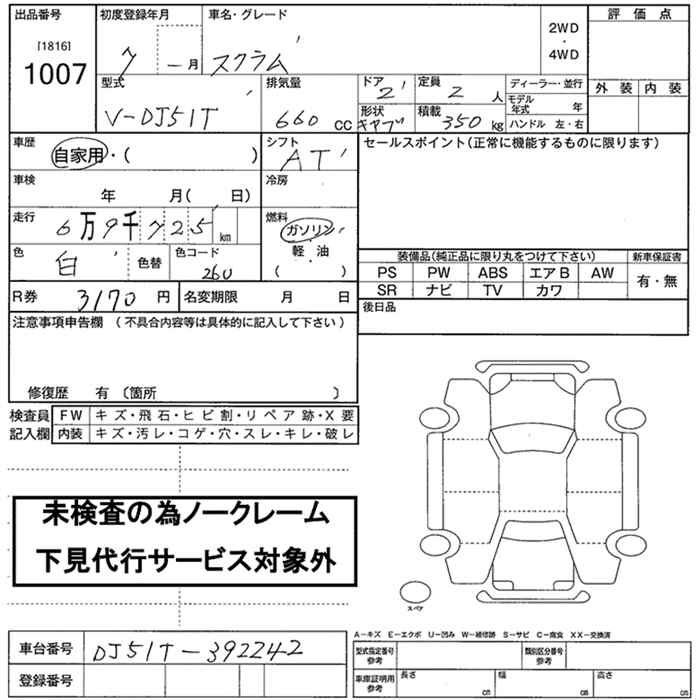 出品番号
[1816]
1007
初度登録年月
7 ー 月
車名・グレード
スクラム
2WD
・
4WD
評価点
外装 内装
型式
V-DJ51T
排気量
660 CC
ドア
2
定員
2 人
形状
キャブ
積載
350 kg
ディーラー・並行
モデル年式 年
ハンドル 左・右
車歴
自家用・( )
シフト
AT
セールスポイント(正常に機能するものに限ります)
車検
年 月( 日)
冷房
走行
6万9千725 km
燃料
ガソリン
軽・油
( )
色
白
色替
色コード
260
装備品(純正品に限り丸をつけて下さい)
新車保証書
PS PW ABS エアB AW
SR ナビ TV カワ
有・無
R券 3170 円
名変期限 月 日
後日品
注意事項申告欄 (不具合内容等は具体的に記入して下さい)
修復歴 有 〔箇所 〕
検査員記入欄
FW キズ・飛石・ヒビ割・リペア跡・X要
内装 キズ・汚レ・コゲ・穴・スレ・キレ・破レ
未検査の為ノークレーム
下見代行サービス対象外
スペア
A-キズ E-エクボ U-凹み W-補修跡 S-サビ C-腐食 XX-交換済
車台番号 DJ51T-392242
登録番号
型式指定番号
参考
類別区分番号
参考
車庫証明用
参考
長さ cm
幅 cm
高さ cm